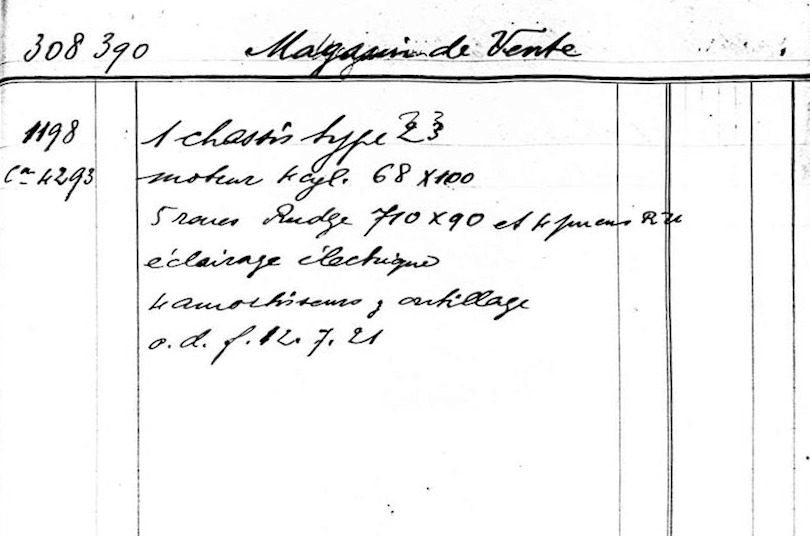 308 390 Magasin de Vente
1198 1 chassis type 23
Ca 4293 moteur 4 cyl. 68 x 100
5 roues Rudge 710 x 90 et 4 pneus RU
éclairage électrique
4 amortisseurs, outillage
o. d. f. 12. 7. 21